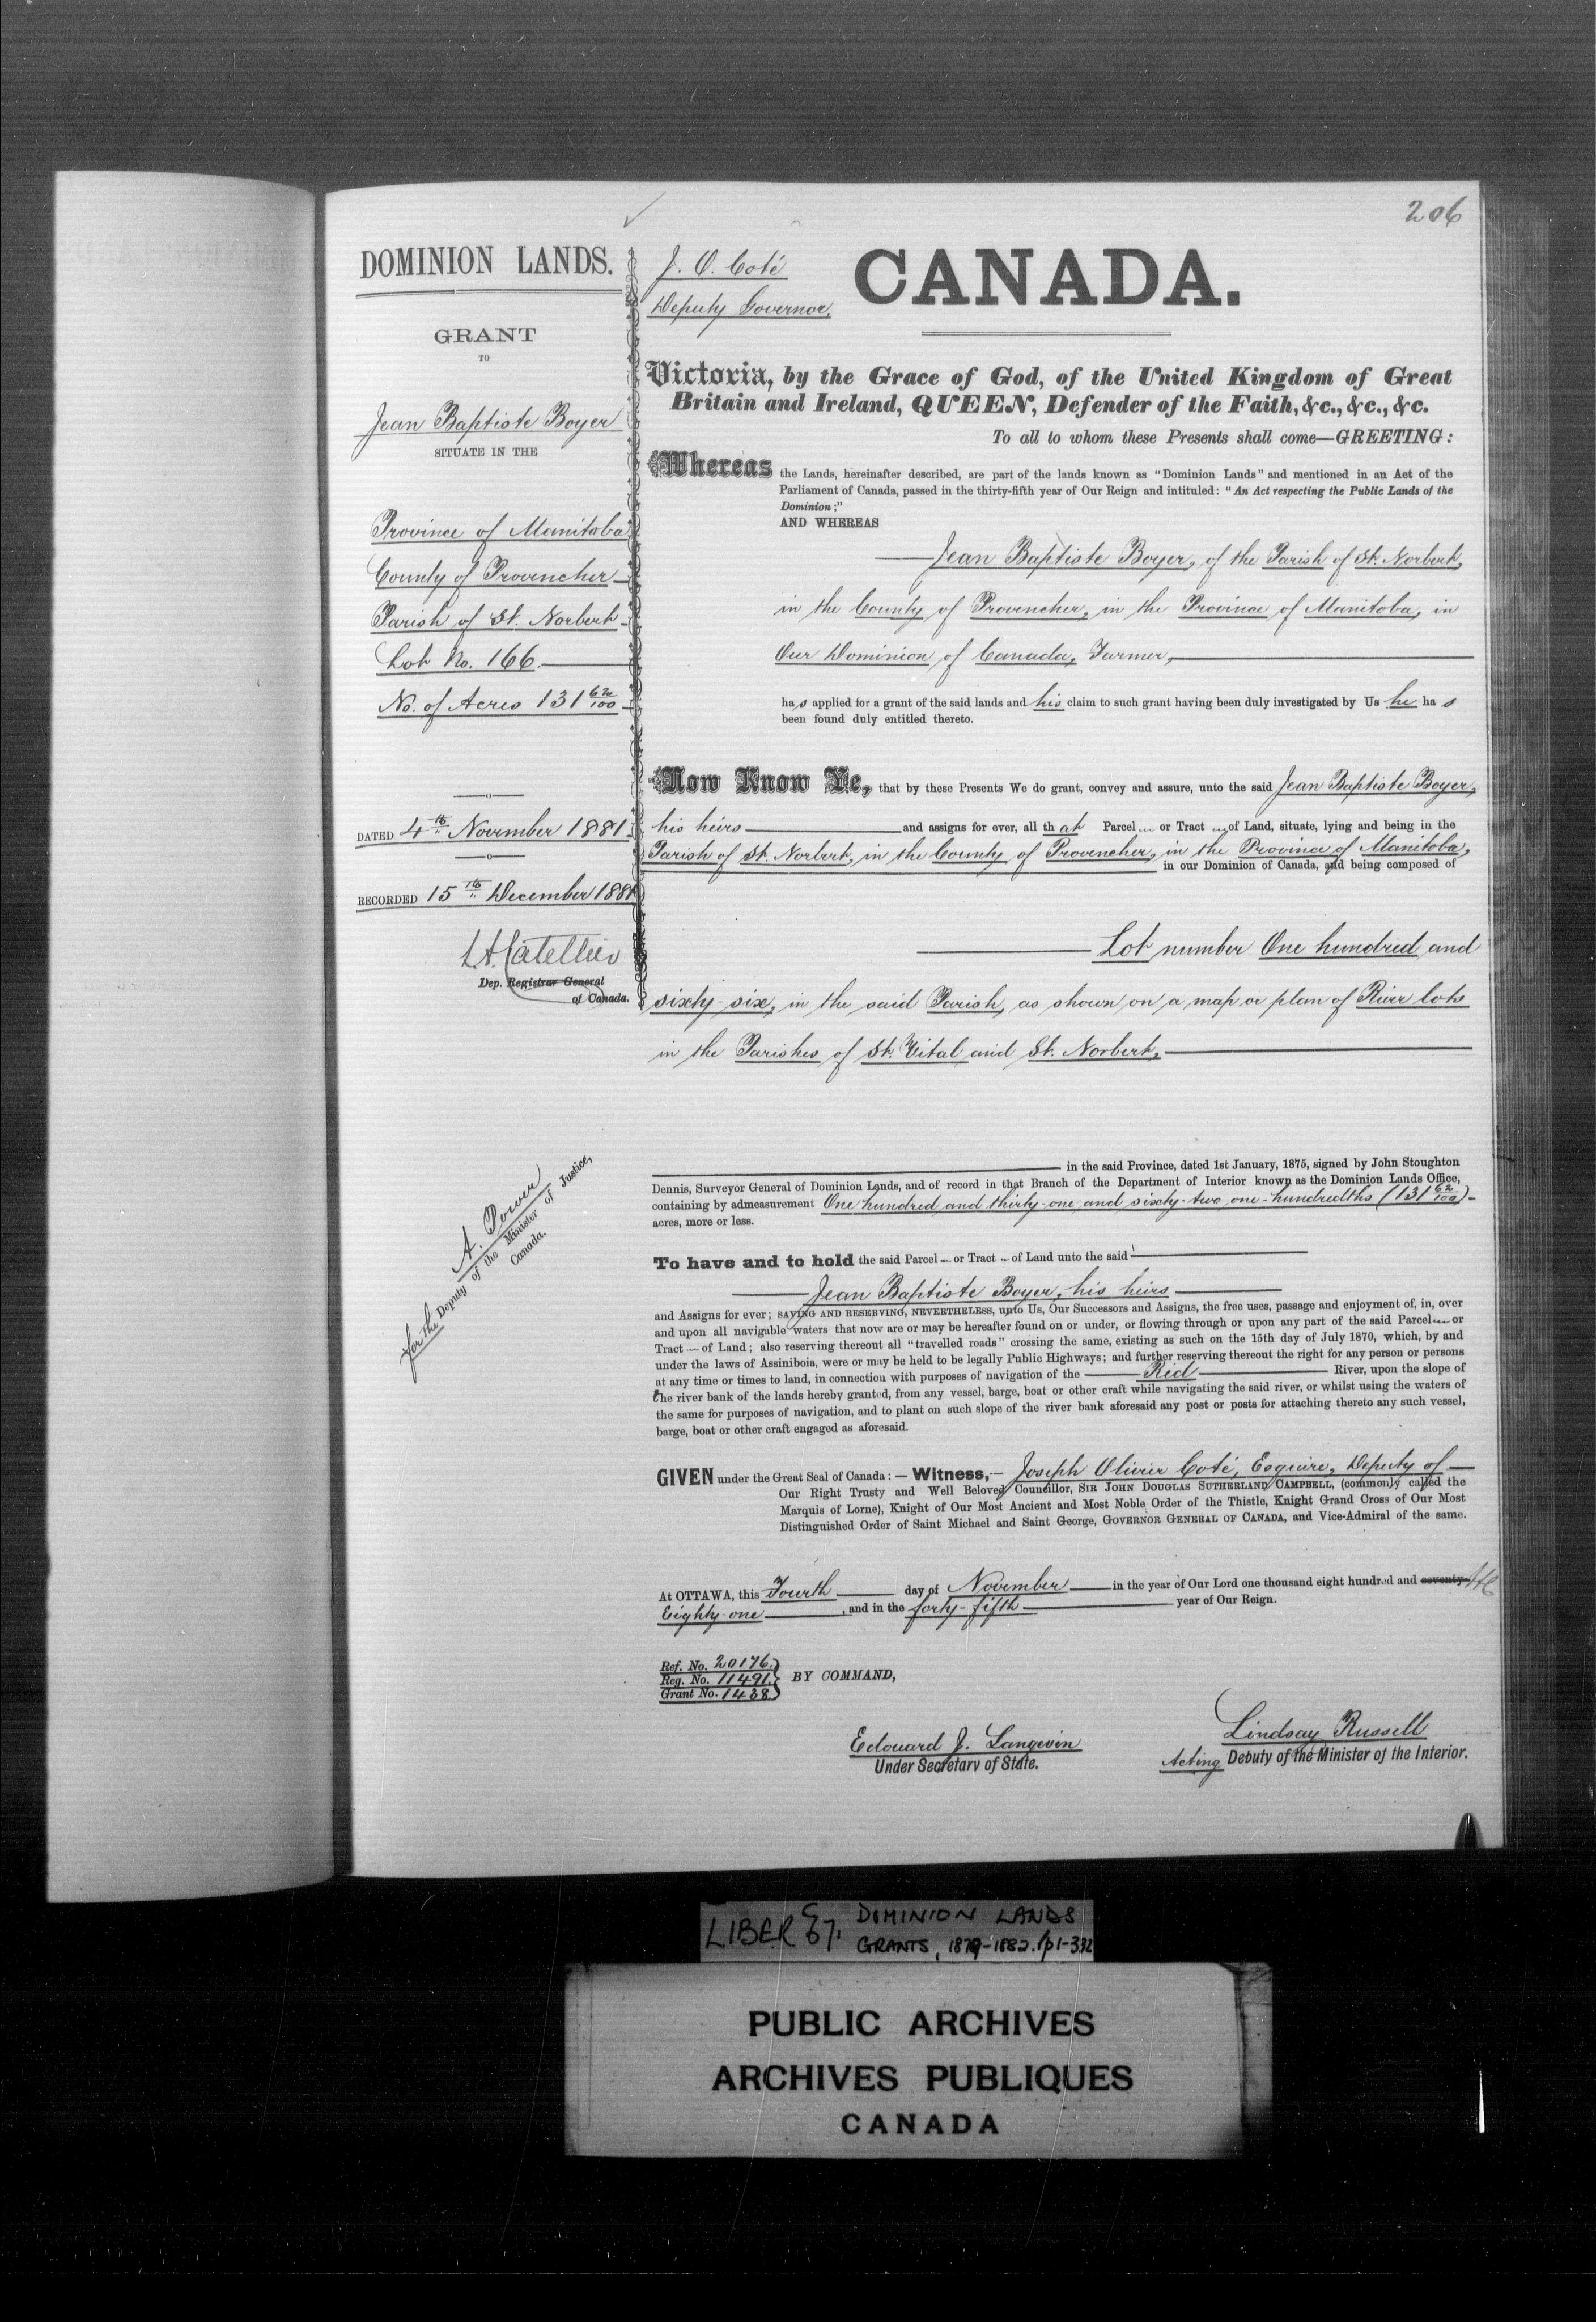 206
DOMINION LANDS.
GRANT
TO
Jean Baptiste Boyer
SITUATE IN THE
Province of Manitoba
County of Provencher
Parish of St. Norbert
Lot No. 166.
No. of Acres 131 62/100
DATED 4th November 1881.
RECORDED 15th December 1881
L.A. Catellier
Dep. Registrar General
of Canada.
A. Power
for the Deputy of the Minister of Justice,
Canada.
J. O. Coté
Deputy Governor.
CANADA.
Victoria, by the Grace of God, of the United Kingdom of Great
Britain and Ireland, QUEEN, Defender of the Faith, &c., &c., &c.
To all to whom these Presents shall come—GREETING:
Whereas the Lands, hereinafter described, are part of the lands known as "Dominion Lands" and mentioned in an Act of the
Parliament of Canada, passed in the thirty-fifth year of Our Reign and intituled: "An Act respecting the Public Lands of the
Dominion;"
AND WHEREAS
Jean Baptiste Boyer, of the Parish of St. Norbert,
in the County of Provencher, in the Province of Manitoba, in
Our Dominion of Canada, Farmer,
has applied for a grant of the said lands and his claim to such grant having been duly investigated by Us he has
been found duly entitled thereto.
Now Know Ye, that by these Presents We do grant, convey and assure, unto the said Jean Baptiste Boyer,
his heirs and assigns for ever, all that Parcel or Tract of Land, situate, lying and being in the
Parish of St. Norbert, in the County of Provencher, in the Province of Manitoba,
in our Dominion of Canada, and being composed of
Lot number One hundred and
sixty-six, in the said Parish, as shown on a map or plan of River lots
in the Parishes of St. Vital and St. Norbert,
in the said Province, dated 1st January, 1875, signed by John Stoughton
Dennis, Surveyor General of Dominion Lands, and of record in that Branch of the Department of Interior known as the Dominion Lands Office,
containing by admeasurement One hundred and thirty-one and sixty-two one-hundredths (131 62/100)
acres, more or less.
To have and to hold the said Parcel or Tract of Land unto the said
Jean Baptiste Boyer, his heirs
and Assigns for ever; SAVING AND RESERVING, NEVERTHELESS, unto Us, Our Successors and Assigns, the free uses, passage and enjoyment of, in, over
and upon all navigable waters that now are or may be hereafter found on or under, or flowing through or upon any part of the said Parcel or
Tract of Land; also reserving thereout all "travelled roads" crossing the same, existing as such on the 15th day of July 1870, which, by and
under the laws of Assiniboia, were or may be held to be legally Public Highways; and further reserving thereout the right for any person or persons
at any time or times to land, in connection with purposes of navigation of the Red River, upon the slope of
the river bank of the lands hereby granted, from any vessel, barge, boat or other craft while navigating the said river, or whilst using the waters of
the same for purposes of navigation, and to plant on such slope of the river bank aforesaid any post or posts for attaching thereto any such vessel,
barge, boat or other craft engaged as aforesaid.
GIVEN under the Great Seal of Canada:—Witness,— Joseph Olivier Coté, Esquire, Deputy of
Our Right Trusty and Well Beloved Councillor, SIR JOHN DOUGLAS SUTHERLAND CAMPBELL, (commonly called the
Marquis of Lorne), Knight of Our Most Ancient and Most Noble Order of the Thistle, Knight Grand Cross of Our Most
Distinguished Order of Saint Michael and Saint George, GOVERNOR GENERAL OF CANADA, and Vice-Admiral of the same.
At OTTAWA, this Fourth day of November in the year of Our Lord one thousand eight hundred and seventy-
Eighty-one, and in the forty-fifth year of Our Reign.
Ref. No. 20176.
Reg. No. 11491.
Grant No. 1438.
BY COMMAND,
Edouard J. Langevin
Under Secretary of State.
Lindsay Russell
Acting Deputy of the Minister of the Interior.
LIBER 67, DOMINION LANDS
GRANTS, 1879-1882. p1-332
PUBLIC ARCHIVES
ARCHIVES PUBLIQUES
CANADA